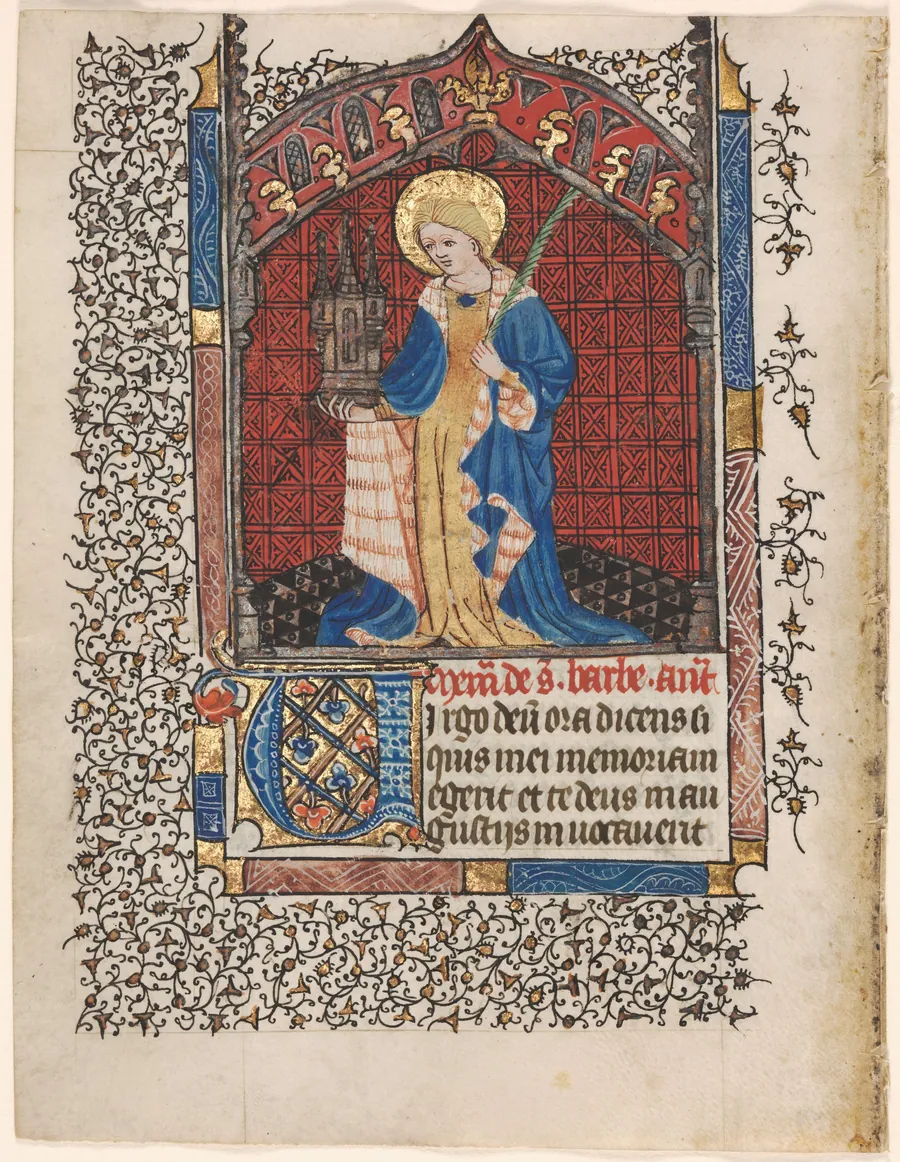 Mem̄ de s̄. barbe. an̄t
Virgo deū ora dicens si
quis mei memoriam
egerit et te deus in an
gustijs inuocauerit